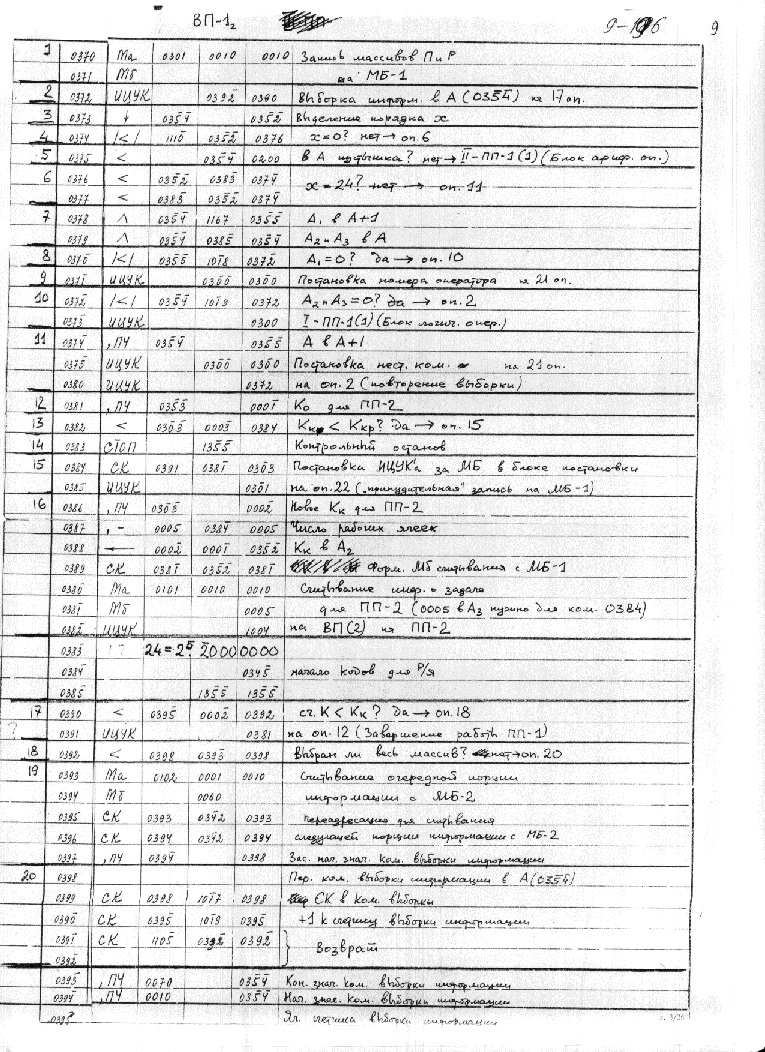 ВП-1₂ 9-196 9
1 0370 Ма 0301 0010 0010 Запись массивов П и Р
0371 Мб на МБ-1
2 0372 ИЦУК 0392 0300 Выборка информ. в А (0354̅) на 17 оп.
3 0373 ↓ 0354̅ 0352̅ Выделение порядка x
4 0374 |<| 1110̅ 0352̅ 0376 x=0? нет → оп.6
5 0375 < 0354̅ 0200 в А пустышка? нет → II-ПП-1(1) (Блок ариф. оп.)
6 0376 < 0352̅ 0383̅ 0374̅
0377 < 0383̅ 0352̅ 0374̅ x=24? нет → оп.11
7 0378 ∧ 0354̅ 1167 0355̅ А₁ в А+1
0379 ∧ 0354̅ 0385̅ 0354̅ А₂ и А₃ в А
8 0370̅ |<| 0355̅ 1018 0372̅ А₁=0? да → оп.10
9 0371̅ ИЦУК 0300̅ 0300̅ Постановка номера оператора на 21 оп.
10 0372̅ |<| 0354̅ 1019 0372 А₂ и А₃=0? да → оп.2
0373̅ ИЦУК 0300 I-ПП-1(1) (Блок логич. опер.)
11 0374̅ ,ПЧ 0354̅ 0355̅ А в А+1
0375̅ ИЦУК 0300̅ 0300̅ Постановка нест. ком. на 21 оп.
0380 ИЦУК 0372 на оп.2 (повторение выборки)
12 0381 ,ПЧ 0353̅ 0001̅ К₀ для ПП-2
13 0382 < 0303̅ 0003̅ 0384 Кк < Ккр? да → оп.15
14 0383 СТОП 1355̅ Контрольный останов
15 0384 СК 0391 0381̅ 0303̅ Постановка ИЦУК'а за МБ в блоке постановки
0385 ИЦУК 0301̅ на оп.22 („принудительная" запись на МБ-1)
16 0386 ,ПЧ 0303̅ 0002̅ Новое Кк для ПП-2
0387 ,- 0005 0384̅ 0005 Число рабочих ячеек
0388 ← 0002̅ 0001̅ 0352̅ Кк в А₂
0389 СК 0381̅ 0352̅ 0381̅ Форм. Мб считывания с МБ-1
0380̅ Ма 0101 0010 0010 Считывание инф. о задаче
0381̅ Мб 0005 для ПП-2 (0005 в А₃ нужно для ком. 0384)
0382̅ ИЦУК 1004 на ВП(2) на ПП-2
0383̅ 24=2⁵ 2̅0000000
0384̅ 0345̅ начало кодов для Р/Я
0385̅ 1355̅ 1355̅
17 0390 < 0395̅ 0002̅ 0392 сч. К < Кк? да → оп.18
? 0391 ИЦУК 0381 на оп.12 (Завершение работы ПП-1)
18 0392 < 0398 0393̅ 0398 Выбран ли весь массив? нет → оп.20
19 0393 Ма 0102 0001 0010 Считывание очередной порции
0394 Мб 0060 информации с МБ-2
0395 СК 0393 0342 0393 переадресация для считывания
0396 СК 0394 0342 0394 следующей порции информации с МБ-2
0397 ,ПЧ 0394̅ 0398 Зас. нач. знач. ком. выборки информации
20 0398 Пер. ком. выборки информации в А (0354̅)
0399 СК 0398 1017̅ 0398 СК в ком. выборки
0390̅ СК 0395̅ 1019 0395̅ +1 к счетчику выборки информации
0391̅ СК 1105̅ 0392̅ 0392̅ } Возврат
0392̅
0393̅ ,ПЧ 0070 0354̅ Кон. знач. ком. выборки информации
0394̅ ,ПЧ 0010 0354̅ Нач. знач. ком. выборки информации
0395̅ Яч. счетчика выборки информации